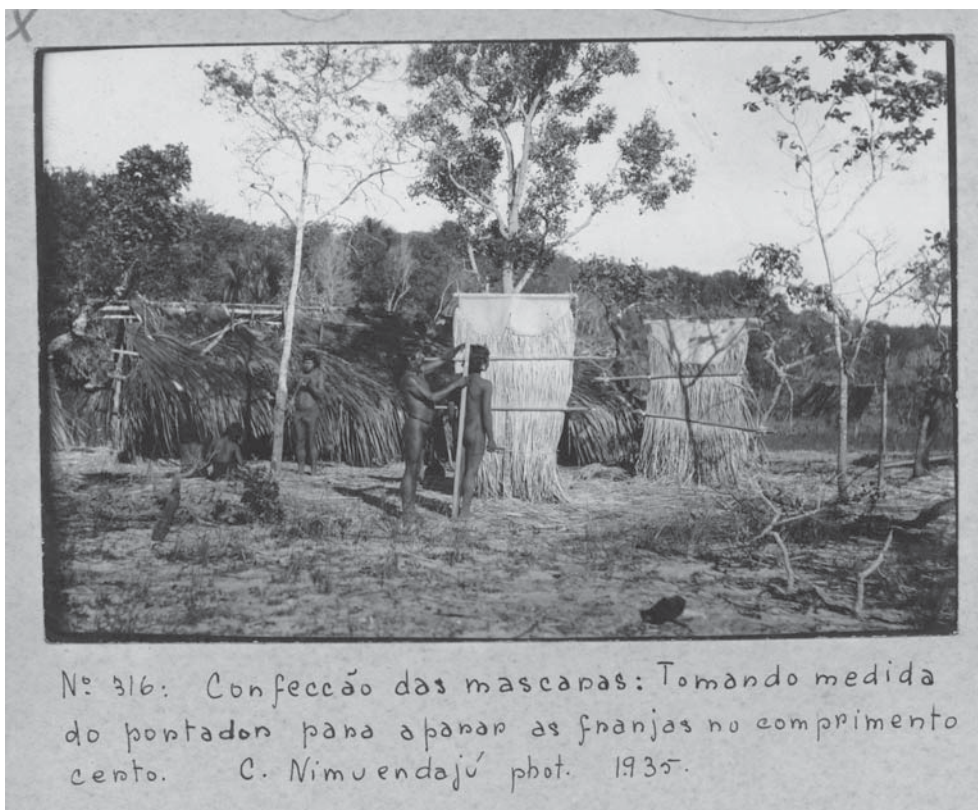 X
Nº 316: Confeccão das mascaras: Tomando medida
do portador para aparar as franjas no comprimento
certo. C. Nimuendajú phot. 1935.